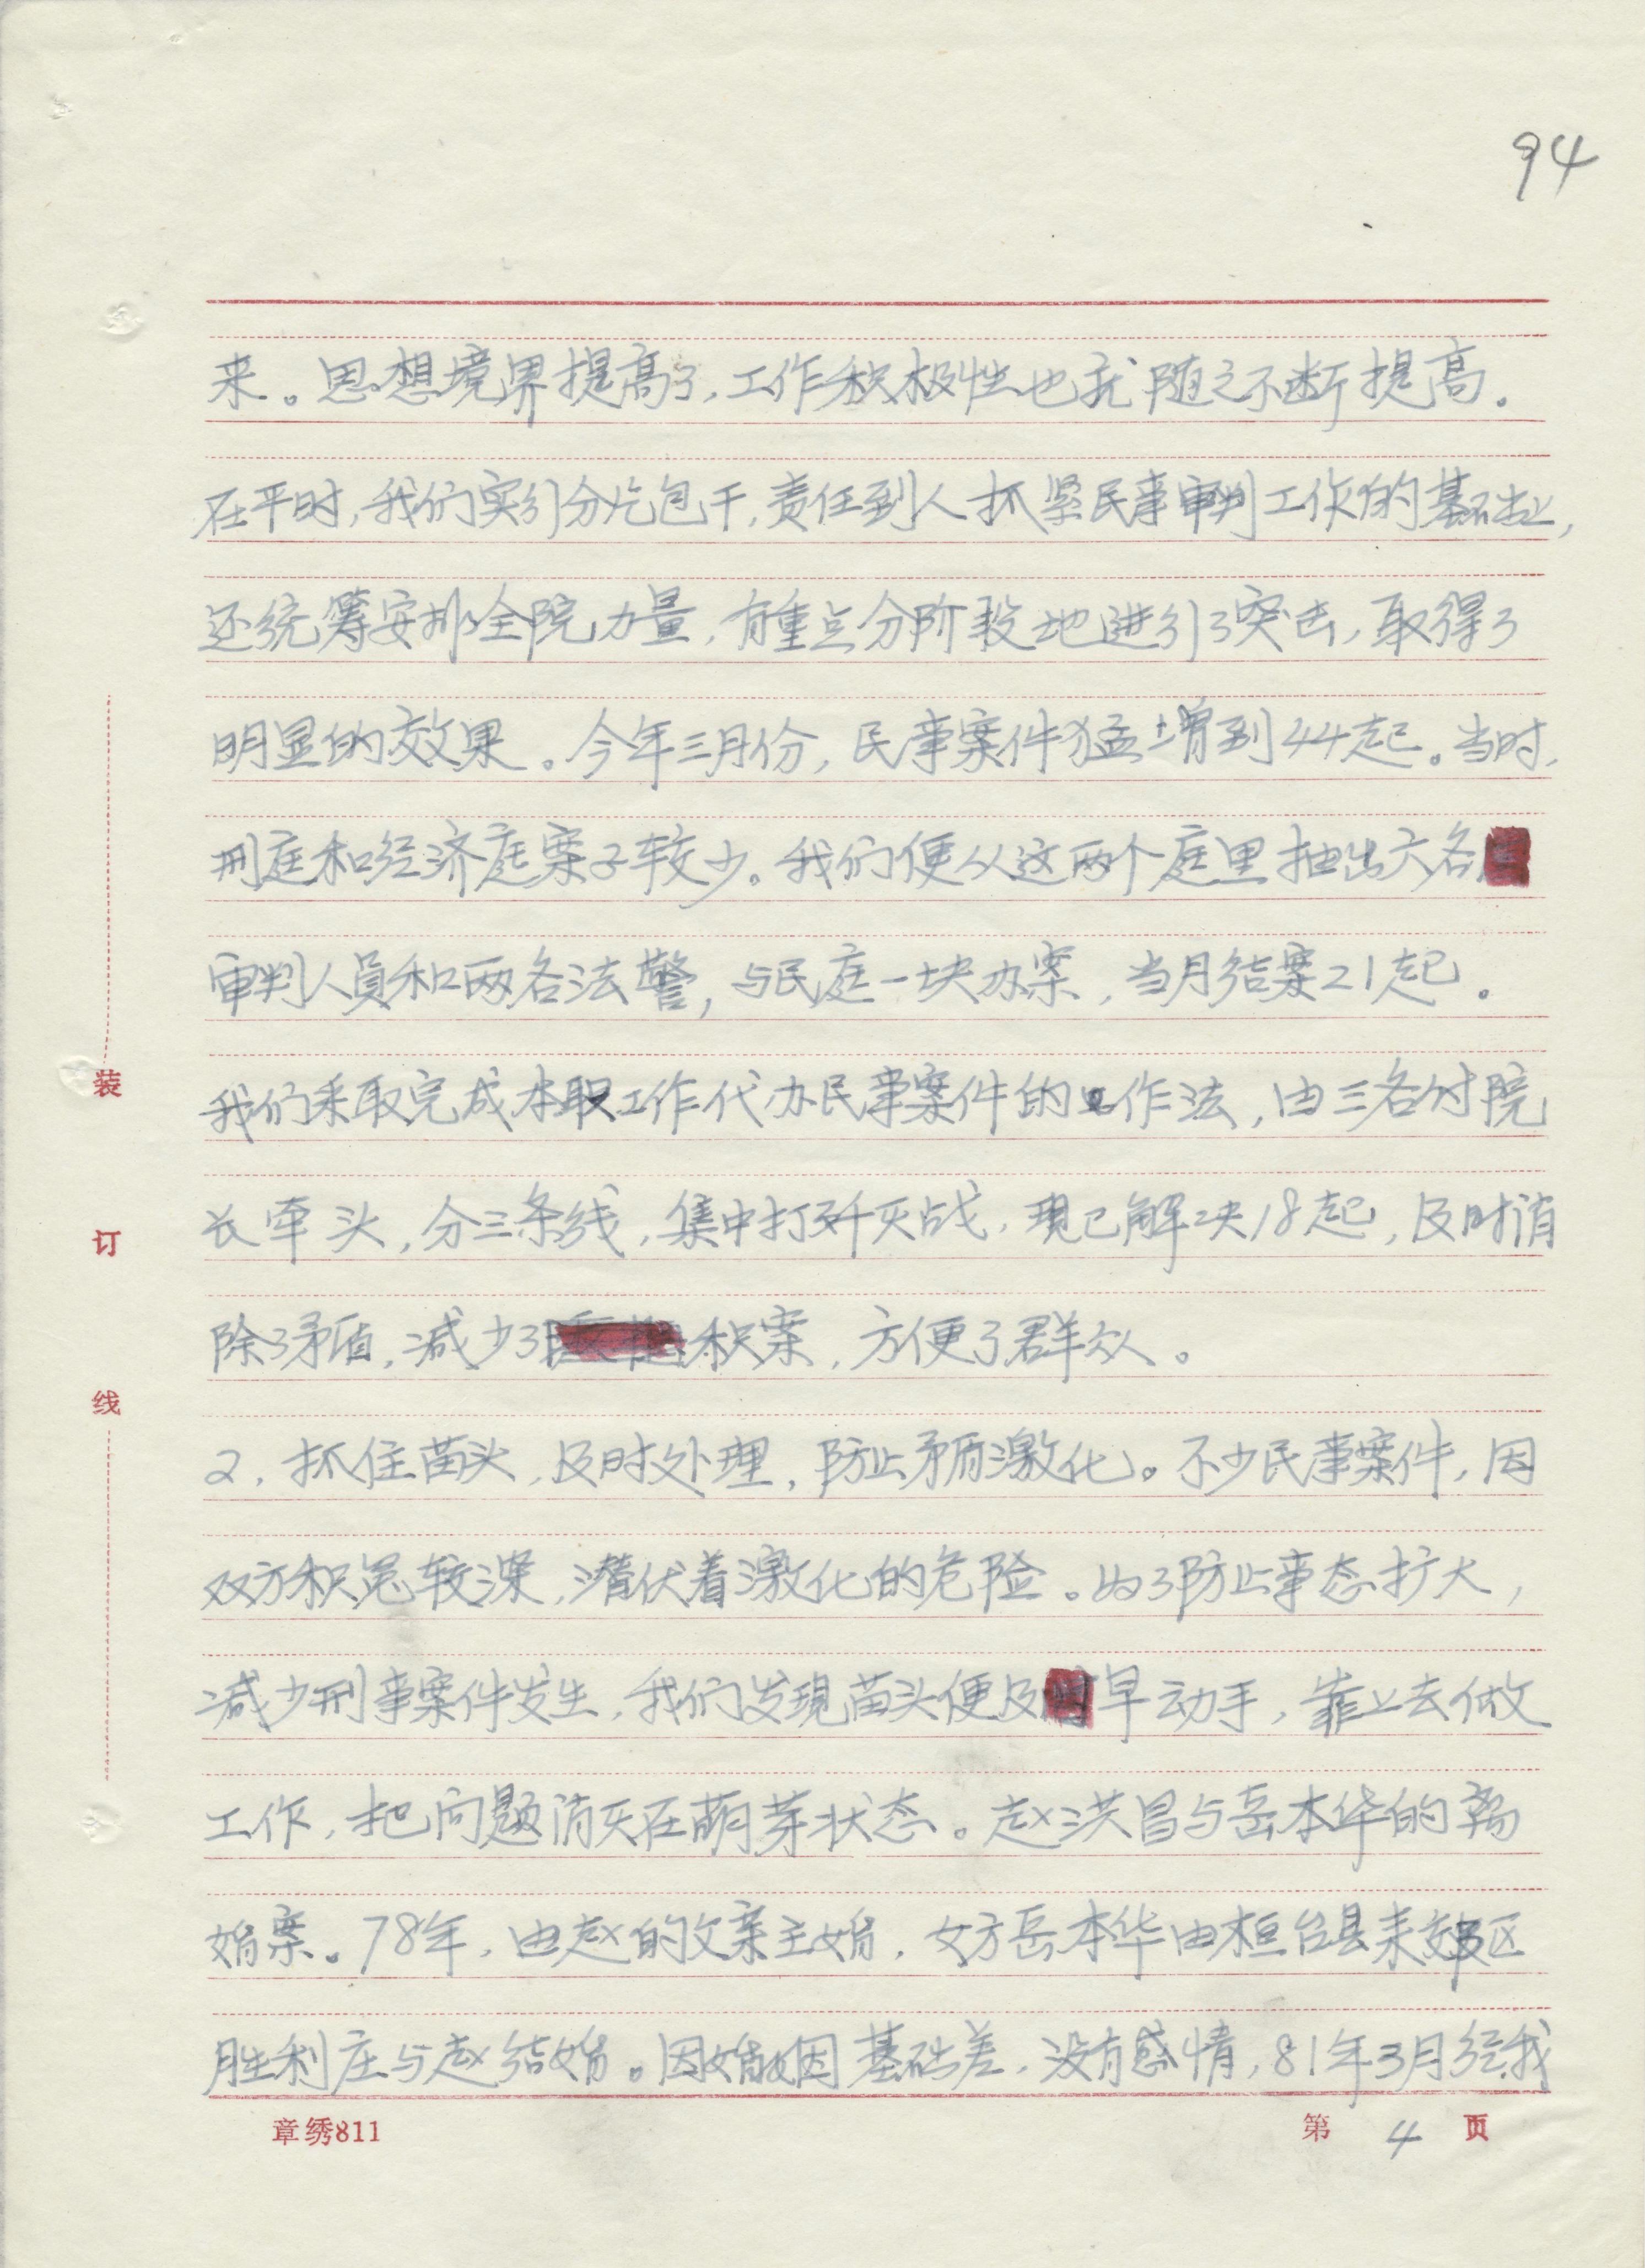 94
来。思想境界提高了,工作积极性也就随之不断提高。
在平时,我们实行分片包干,责任到人抓紧民事审判工作的基础上,
还统筹安排全院力量,有重点分阶段地进行了突击,取得了
明显的效果。今年三月份,民事案件猛增到44起。当时,
刑庭和经济庭案子较少。我们便从这两个庭里抽出六名
审判人员和两名法警,与民庭一块办案,当月结案21起。
我们采取完成本职工作代办民事案件的工作法,由三名付院
长牵头,分三条线,集中打歼灭战,现已解决18起,及时消
除了矛盾,减少了积案,方便了群众。
2,抓住苗头,及时处理,防止矛盾激化。不少民事案件,因
双方积怨较深,潜伏着激化的危险。为了防止事态扩大,
减少刑事案件发生,我们发现苗头便及早动手,靠上去做
工作,把问题消灭在萌芽状态。赵洪昌与岳本华的离
婚案。78年,由赵的父亲主婚,女方岳本华由桓台县来郊区
胜利庄与赵结婚。因婚姻基础差,没有感情,81年3月经我
装
订
线
章绣811
第 4 页